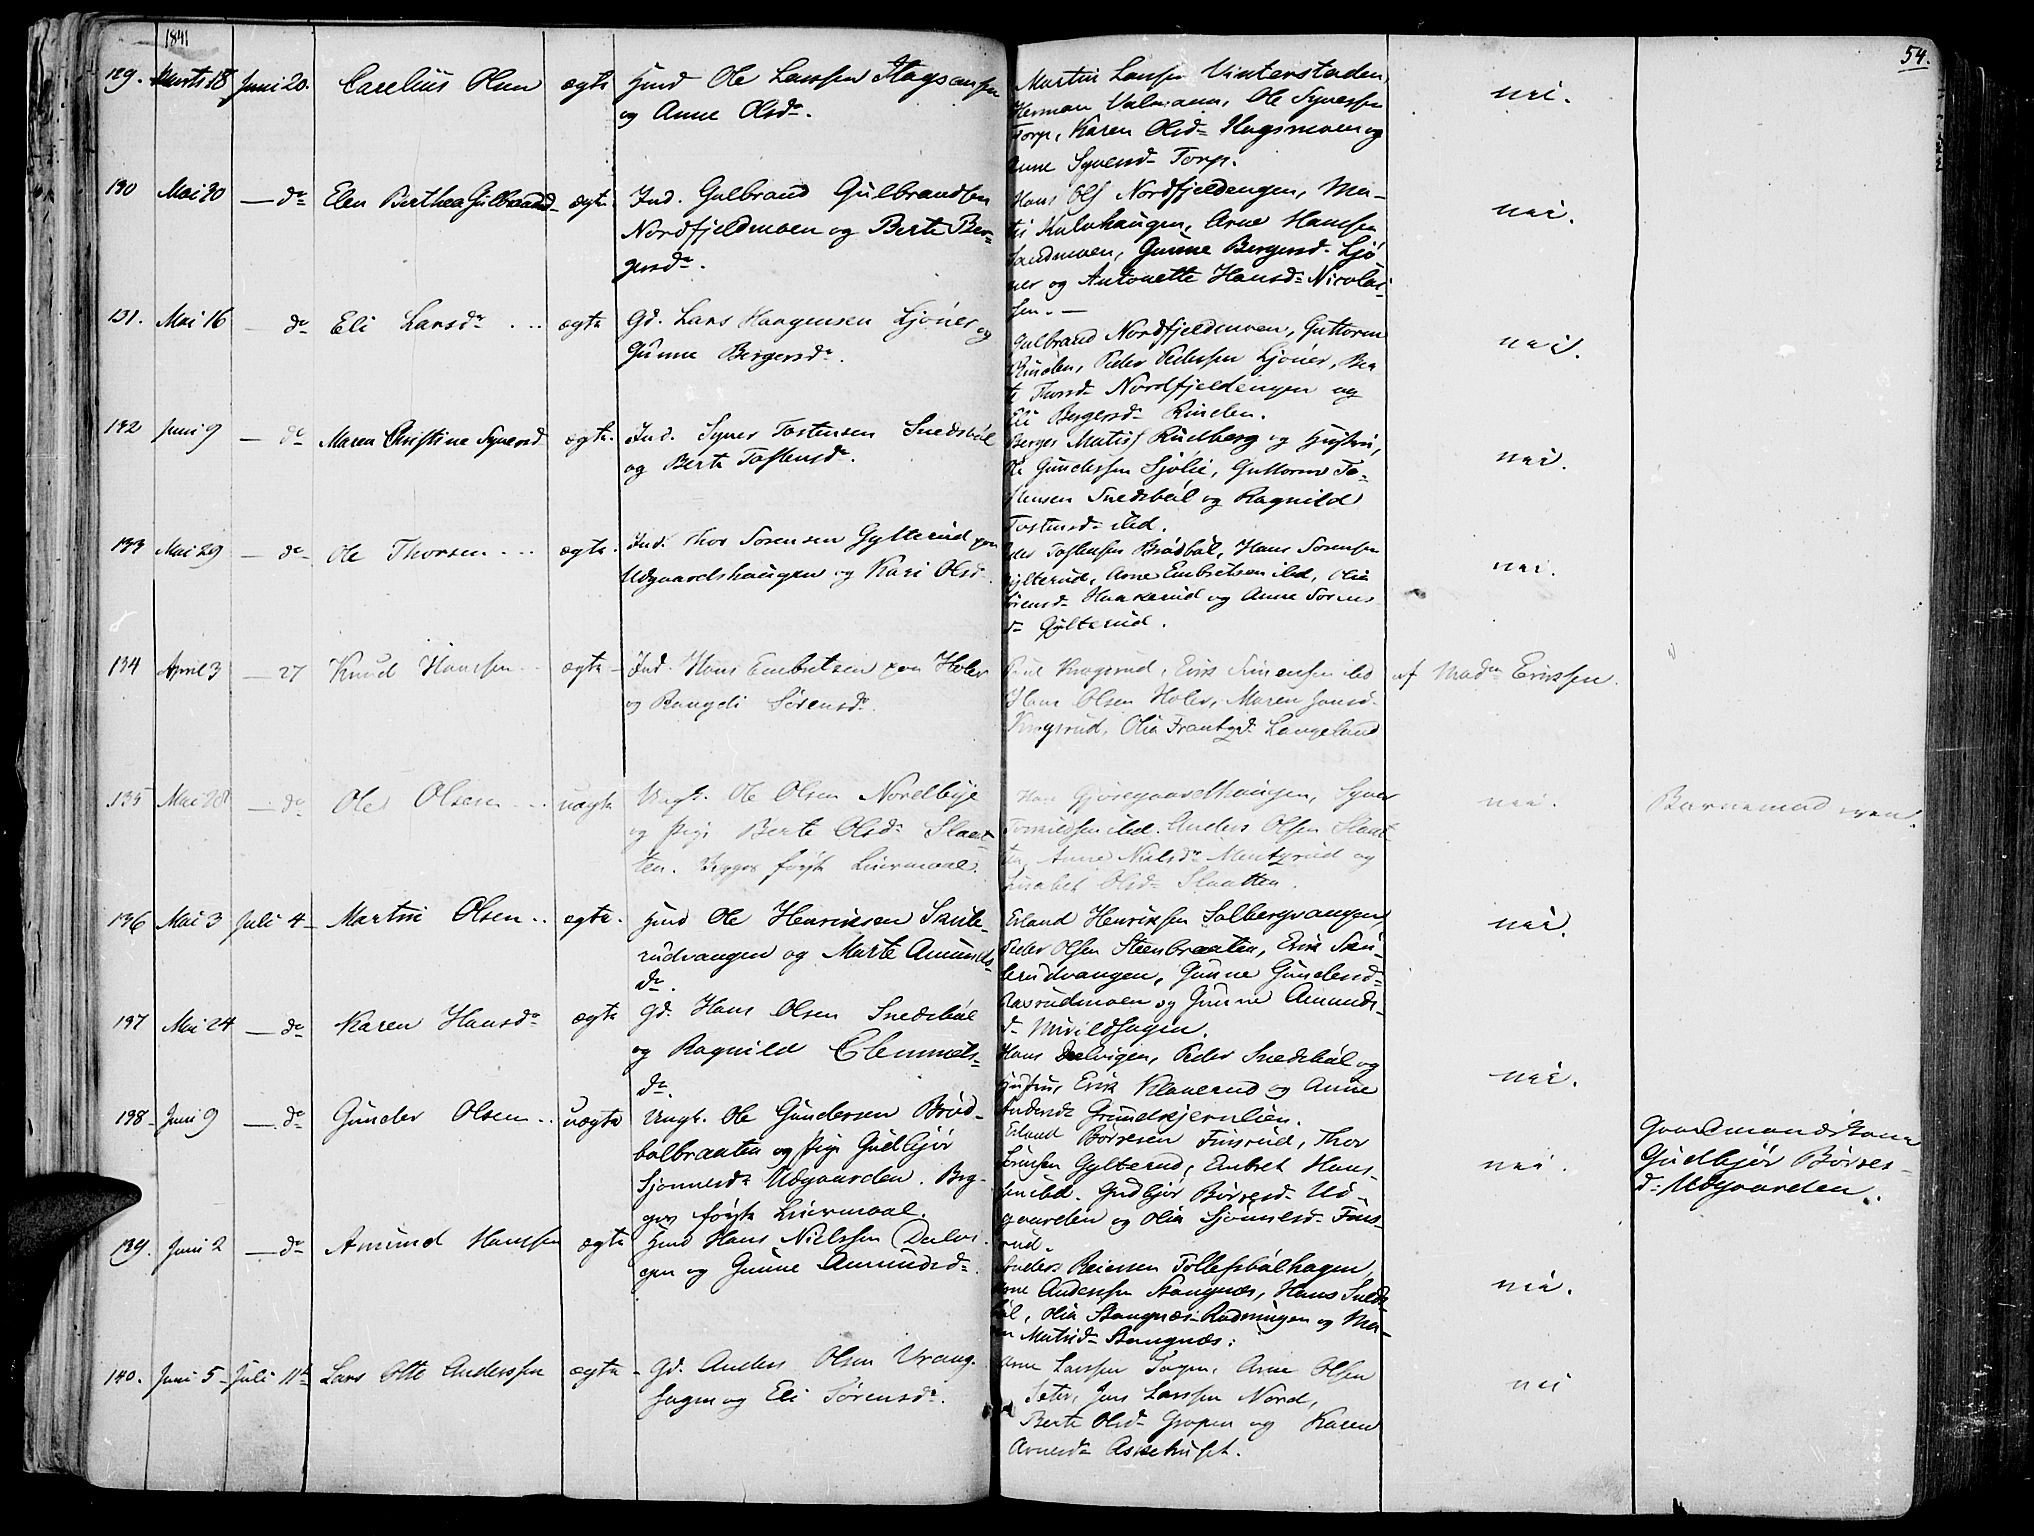 1841
54.
129. Marts 18 Juni 20. Carelius Olsen ægte Husd Ole Larssen
og Anne Olsdr.
Martin Larsen Vinterstaden,
Herman Valmann, Ole Syversen
Torp, Karen Olsd- Hagsmoen og
Anne Syversd- Torp.
nei.
130 Mai 30 — do Elen Berthea Gulbrandsd- ægte Ind. Gulbrand Gulbrandsen
Nordfjeldmoen og Berte Ber-
gersdr.
Hans Ols Nordfjeldengen, Ma-
tis Kulvhaugen, Arne Hansen
Sandmoen, Gunne Bergersd- Ljø
ner og Antonette Hansd- Nicolai-
sen. —
nei.
131. Mai 16 — do Eli Larsdr ægte Gd. Lars Haagensen Ljøner og
Gunne Bergersdr.
Gulbrand Nordfjeldmoen, Guttorm
Rinden, Peder Pedersen Ljøner, Ber
te Nordfjeldengen og
Eli Bergersd- Rinden.
nei.
132 Juni 9 — do Maren Christine Syversd ægte. Ind. Syver Tostensen Snedsbøl
og Berte Tostensdr.
Berger Matiss Rudberg og Hustru,
Ole Gundersen Sjølie, Guttorm To-
stensen Snedsbøl og Ragnild
Tostensd- ibd.
nei.
133 Mai 29 — do Ole Thorsen ægte. Ind. Thor Sørensen Gylterud paa
Udgaardshaugen og Kari Olsd-
Tostensen Brødbøl, Hans Sørensen
Gylterud, Arne Embretsen ibd, Olia
Sørensd- Haakerud og Anne Sørens
d- Gylterud.
nei.
134 April 3 — 27 Knud Hanssen ægte Ind. Hans Embretsen paa Holer
og Rangdi Sørensdr.
Erik Simensen ibd
Hans Olsen Holer, Maren Jonsd-
Krogsrud, Olia Langeland
af Madm Eriksen.
135 Mai 28 — do Ole Olsen uægte Ungk. Ole Olsen Nordbye
og Pige Berte Olsd- Slaat
ten. Begges første Leiermaal.
Hans Gjøsegaardshaugen, Syver
ibd. Anders Olsen Slaat
ten, Anne Nielsdr Mentzrud og
Lisabet Olsd- Slaatten.
nei.
Barnemod egen.
136 Mai 3 Juli 4 Martin Olsen ægte. Husd Ole Henriksen Skule-
rudvangen og Marte Amunds-
dr.
Erland Henriksen Solbergvangen,
Peder Olsen Steenbraaten, Erik Sku-
lerudvangen, Gunne Gundersd-
Rasrudmoen og Gunne Amunds-
d-
nei.
137 Mai 24 — do Karen Hansdr ægte Gd. Hans Olsen Snedsbøl
og Ragnild Clemmets-
dr.
Hans Dalvigen, Peder Snedsbøl og
Hustru, Erik Klanerud og Anne
Andersd- Grundtjernlien.
nei.
138 Juni 9 — do Gunder Olsen uægte Ungk. Ole Gundersen Brød-
bølbraaten og Pige Gudbjør
Sjønnesd- Udgaarden. Beg-
ges første Leiermaal.
Erland Børresen Finsrud, Thor
Sørensen Gylterud, Embret Hans-
sen ibd. Gudbjør Børresd- Ud-
gaarden og Olia Sjønnesd- Fins-
rud.
nei.
Gaardmandskone
Gudbjør Børres-
d- Udgaarden.
139. Juni 2 — do Amund Hanssen ægte Husd Hans Nielssen Dalvi-
gen og Gunne Amundsd-.
Anders Reiersen Tollefsbølhagen,
Arne Anderssen Stangnæs, Hans Sneds-
bøl, Olia Stangnæs-Rudningen og Ma-
ren Matisd- Stangnæs.
nei.
140. Juni 5 Juli 11te Lars Otto Anderssen ægte Gd. Anders Olsen Vrang-
sagen og Eli Sørensdr.
Arne Larssen Sagen, Arne Olsen
Seter, Jens Larssen Nord,
Berte Olsd- Gropen og Karen
Arnesd- Askehuset.
nei